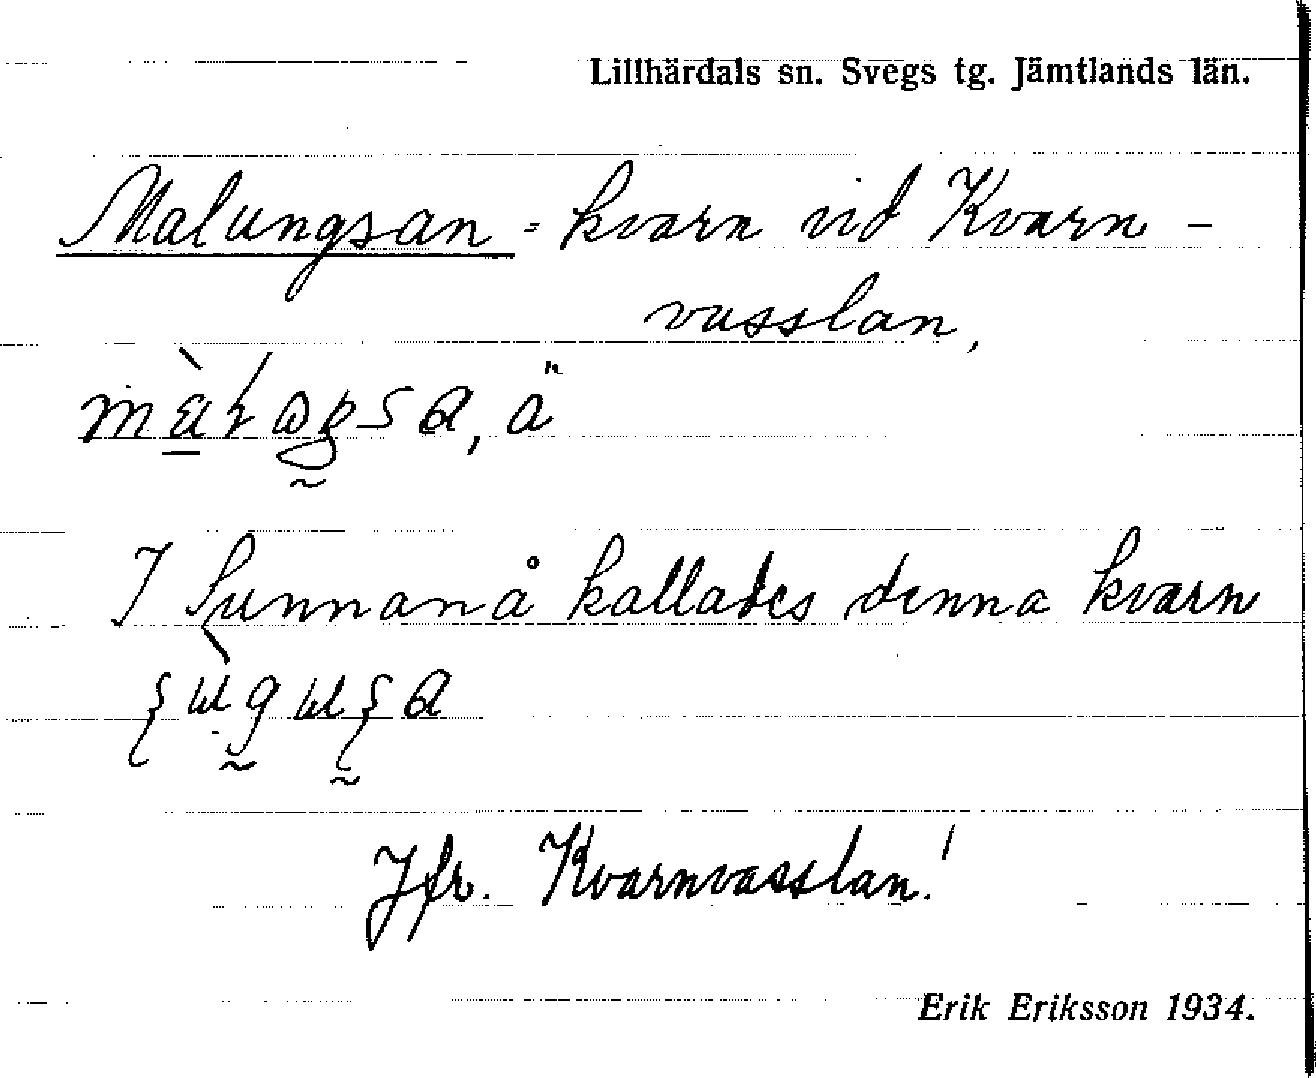 Lillhärdals sn. Svegs tg. Jämtlands län.
Malungsan = kvarn vid Kvarn-
vasslan,
I Sunnanå kallades denna kvarn
Jfr. Kvarnvasslan!
Erik Eriksson 1934.